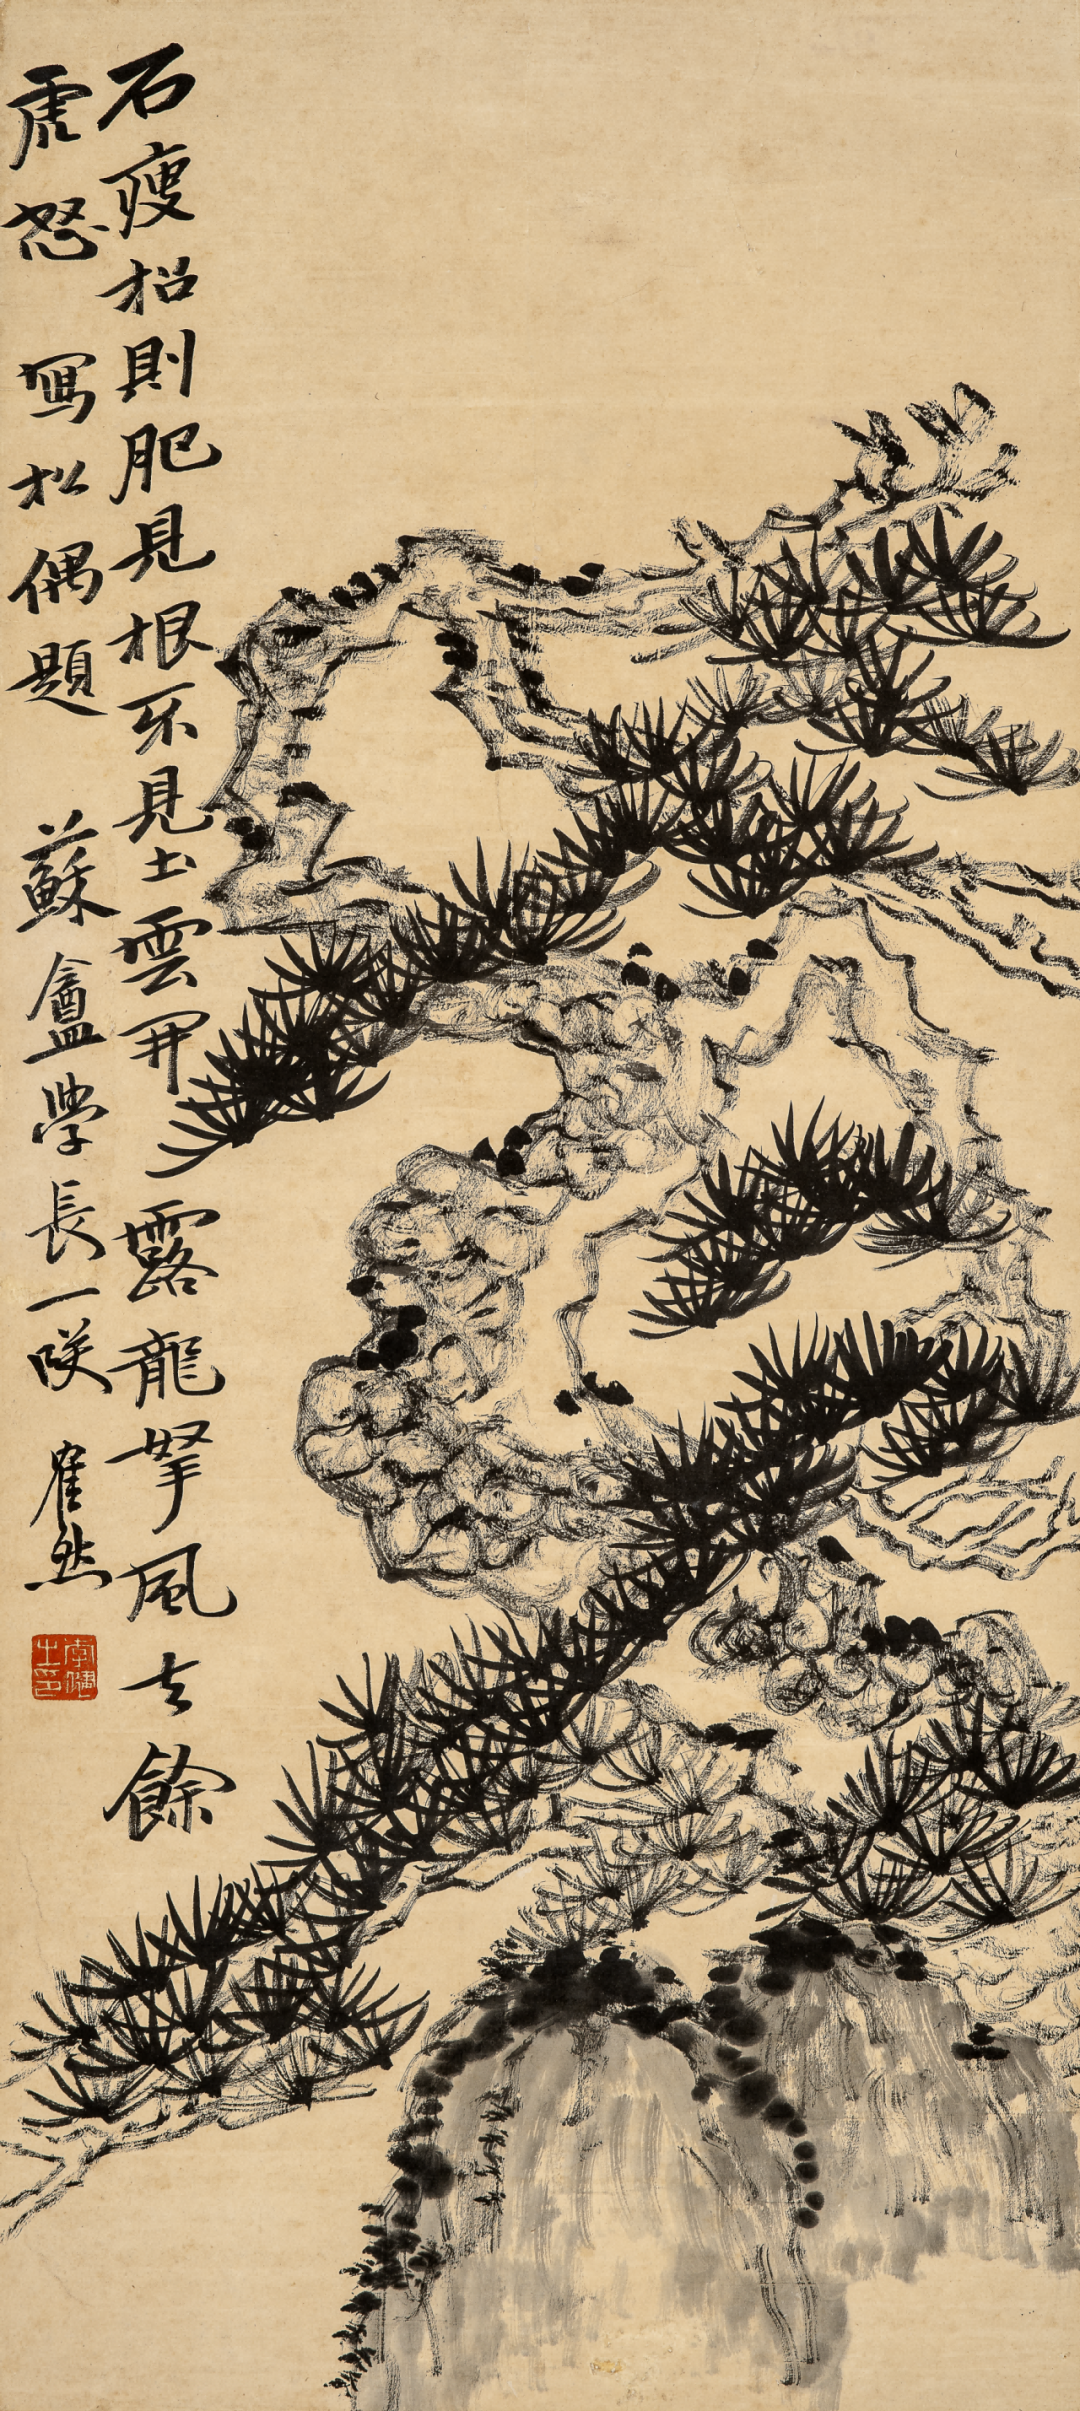 石瘦松則肥見根不見土雲開露龍拏風去餘
虎怒 寫松偶題 蘇盦學長一咲 崔然
李健之印